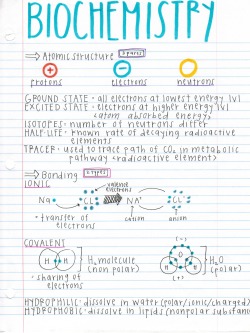 BIOCHEMISTRY
⇒ Atomic structure 3 parts
+ − 
protons electrons neutrons
GROUND STATE - all electrons at lowest energy lvl
EXCITED STATE - electrons at higher energy lvl
(atom absorbed energy)
ISOTOPES - number of neutrons differ
HALF-LIFE - known rate of decaying radioactive
elements
TRACER - used to trace path of CO₂ in metabolic
pathway <radioactive element>
⇒ Bonding types
IONIC
valence electrons
Na Cl → NA⁺ Cl⁻
* transfer of electrons
cation anion
COVALENT
H H
H₂ molecule
(non polar)
* sharing of electrons
(-)
O
H H
(+)
H₂O
(polar)
HYDROPHILIC - dissolve in water (polar/ionic/charged)
HYDROPHOBIC - dissolve in lipids (nonpolar substance